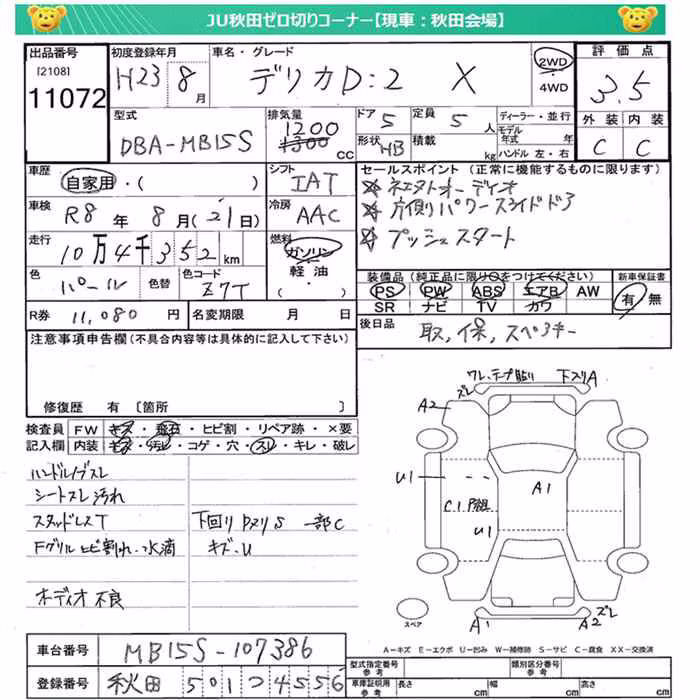 JU秋田ゼロ切りコーナー【現車：秋田会場】
出品番号
[2108]
11072
初度登録年月
H23 8月
車名・グレード
デリカD:2 X
2WD
・
4WD
評価点
3.5
外装 内装
C C
型式
DBA-MB15S
排気量
1200
1300 CC
ドア 5
定員 5 人
形状 HB
積載 kg
ディーラー・並行
モデル年式 年
ハンドル 左・右
車歴
自家用・( )
シフト
IAT
車検
R8年 8月(21日)
冷房
AAC
走行
10万4千352km
燃料
ガソリン
軽油
( ・ )
色
パール
色替
色コード
Z7T
R券 11,080 円
名変期限 月 日
セールスポイント（正常に機能するものに限ります）
片側パワースライドドア
プッシュスタート
装備品（純正品に限り○をつけてください）
PS PW ABS エアB AW
SR ナビ TV カワ
新車保証書
有 無
後日品 取,保,スペアキー
注意事項申告欄（不具合内容等は具体的に記入して下さい）
修復歴 有 〔箇所 〕
検査員 FW キズ・飛石・ヒビ割・リペア跡・×要
記入欄 内装 キズ・汚れ・コゲ・穴・スレ・キレ・破レ
ハンドル/ブスレ
シートスレ 汚れ
スタッドレスT
Fグリル ヒビ割れ・水滴
オーディオ不良
下回りPヌリS 一部C
キズ・U
ワレ、テープ貼り
下ヌリA
ズレ
A2
U1
A1
C.I.P.粗
U1
A1
A2
ズレ
スペア
A－キズ E－エクボ U－凹み W－補修跡 S－サビ C－腐食 XX－交換済
車台番号 MB15S-107386
登録番号 秋田 501 つ 4556
型式指定番号
参考
類別区分番号
車庫証明用
参考
長さ cm
幅 cm
高さ cm